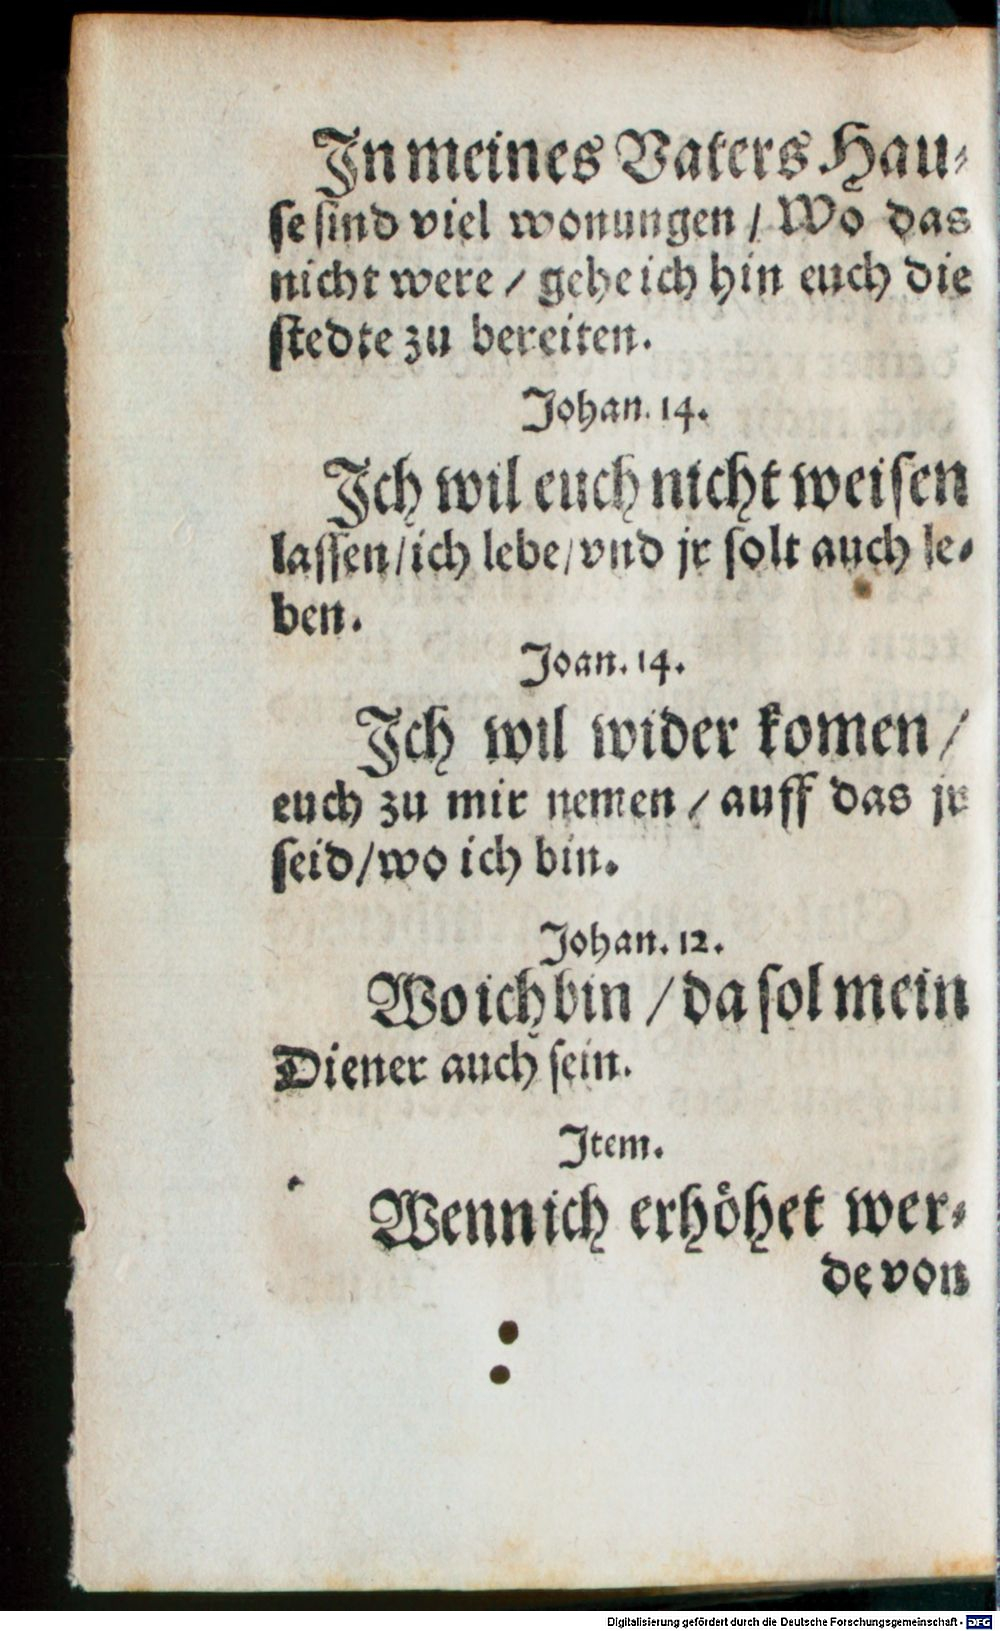 In meines Vaters Hau-
se sind viel wonungen / Wo das
nicht were / gehe ich hin euch die
stedte zu bereiten.
Johan. 14.
Ich wil euch nicht weisen
lassen / ich lebe / vnd jr solt auch le-
ben.
Joan. 14.
Ich wil wider komen /
euch zu mir nemen / auff das jr
seid / wo ich bin.
Johan. 12.
Wo ich bin / da sol mein
Diener auch sein.
Item.
Wenn ich erhöhet wer-
de von
Digitalisierung gefördert durch die Deutsche Forschungsgemeinschaft - DFG